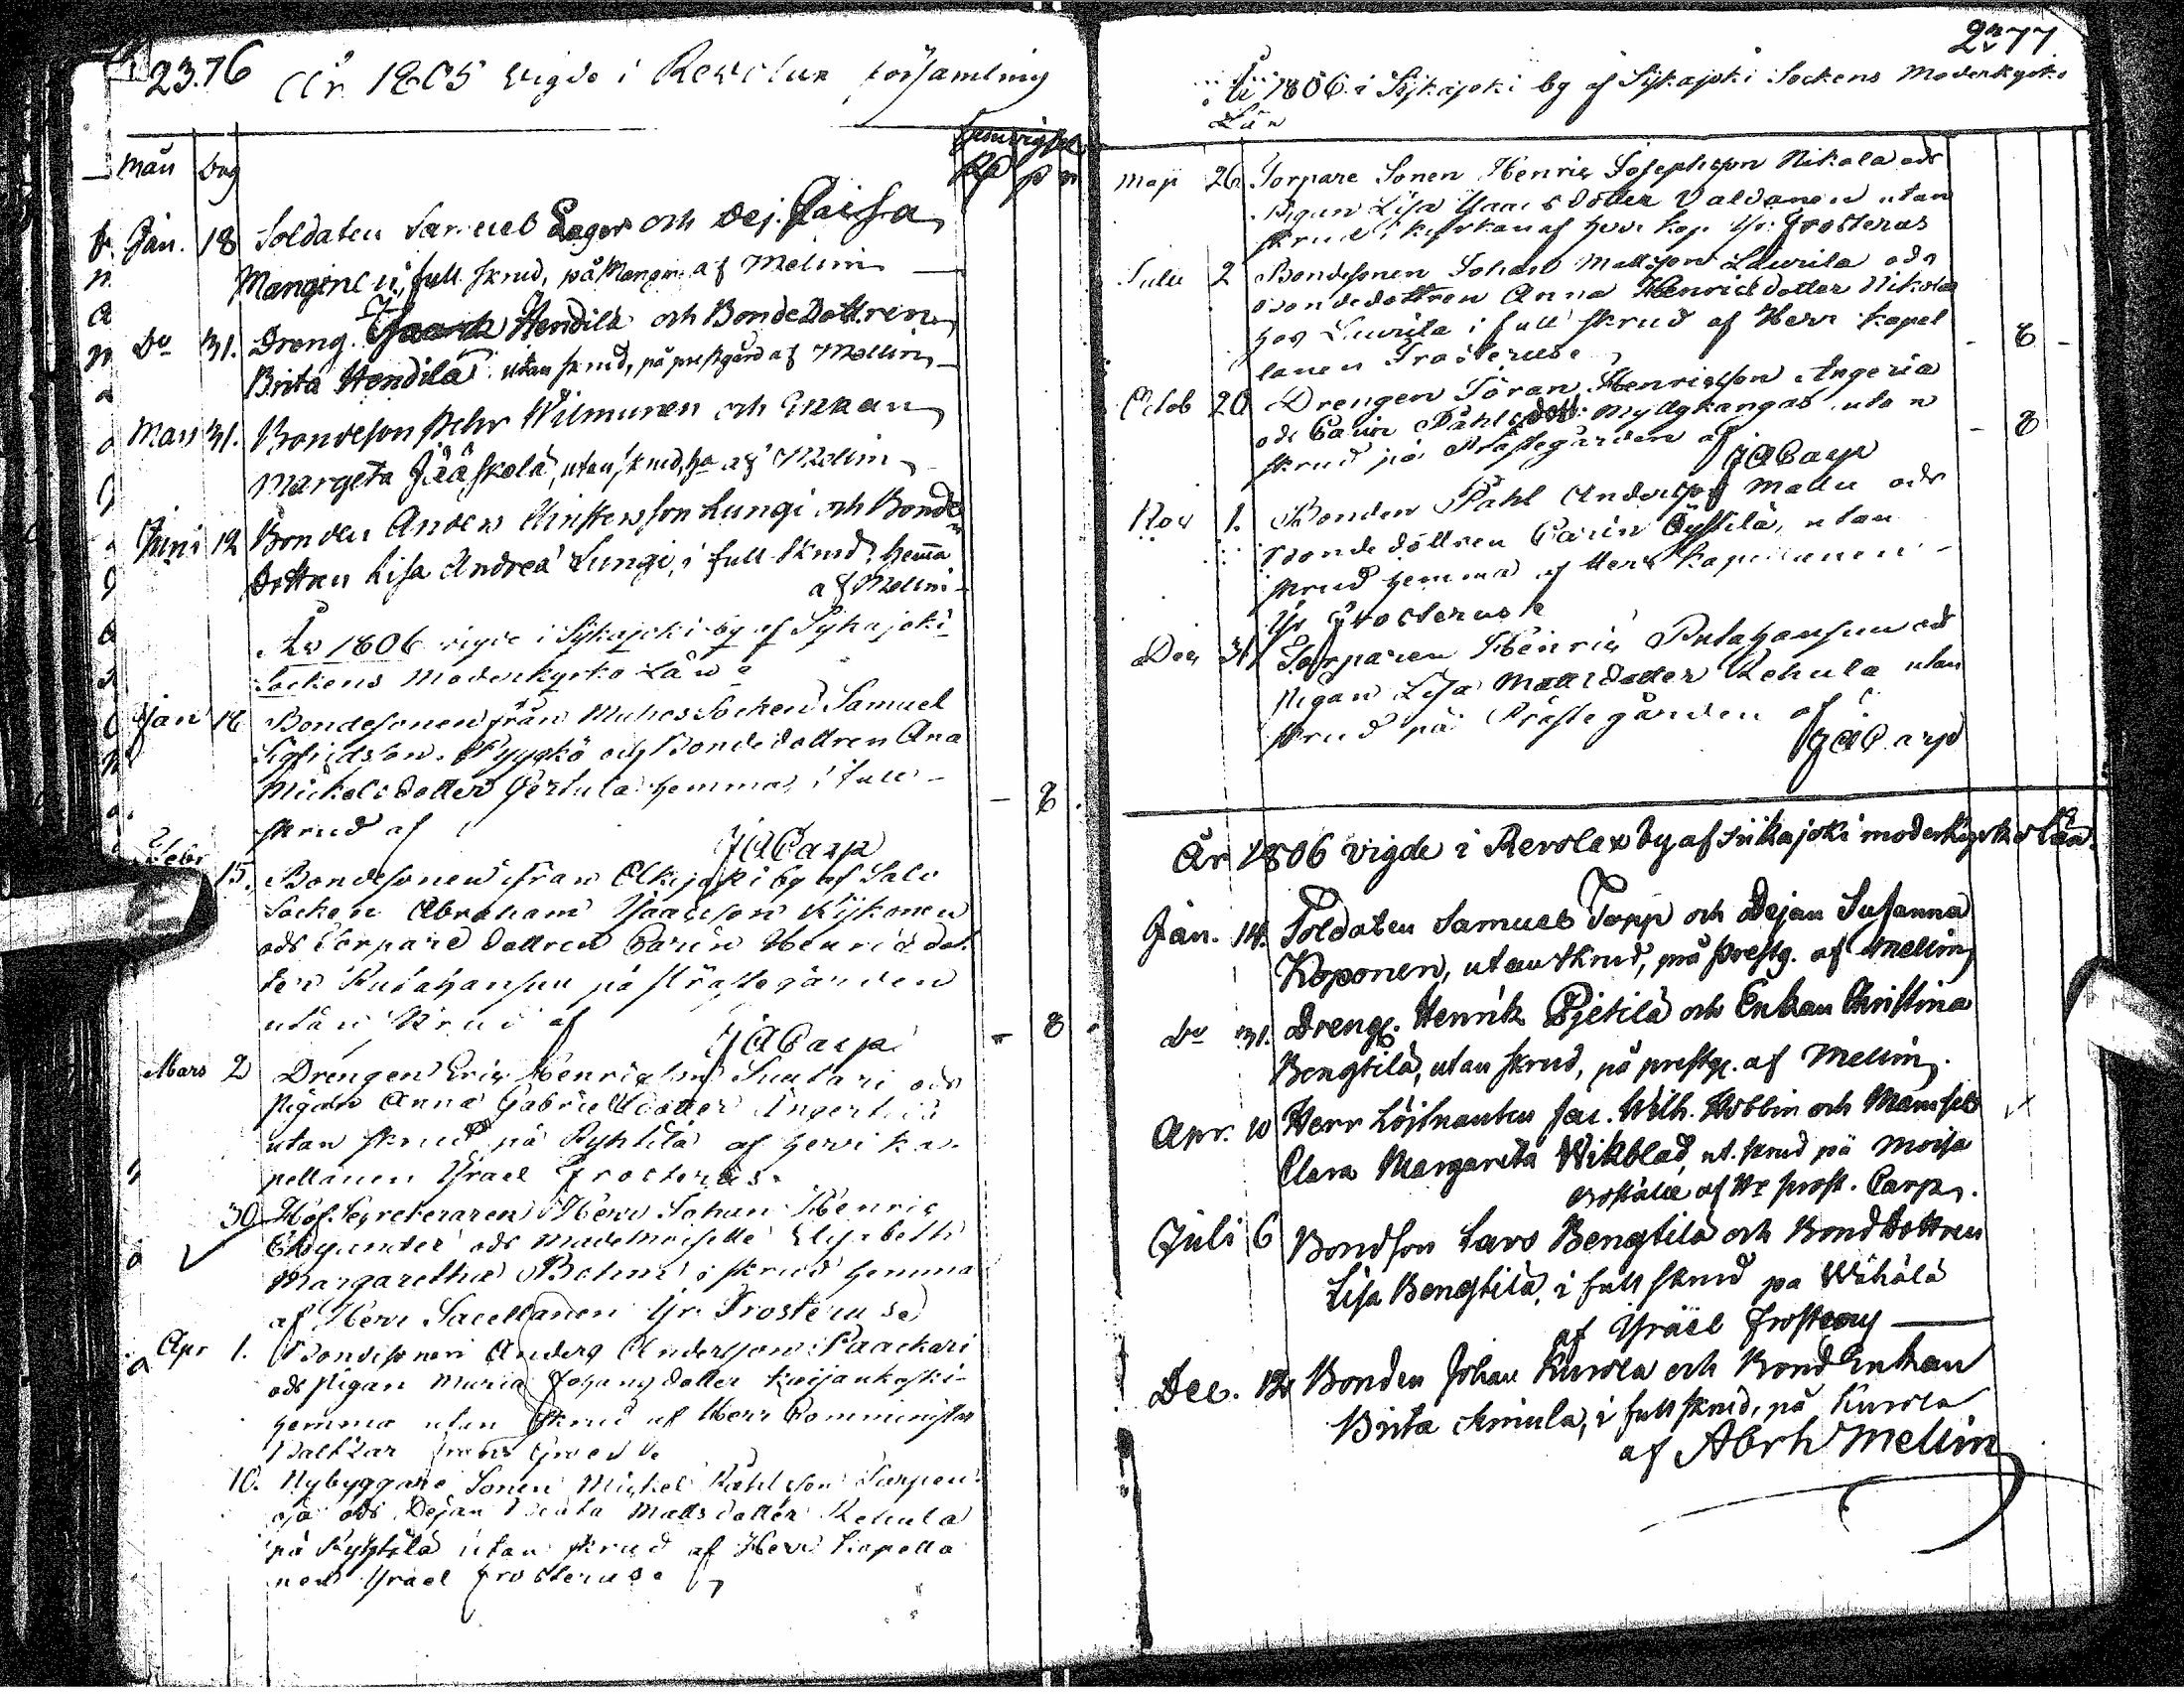 23.76
År 1805 vigde i Revolax församling
Hemvigsel
Mån Dag
Rd ß n
Jan. 18 Soldaten Samuel Lager och Dej. Caisa
Manginen i full skrud, på Mangin. af Mellin
Do 31. Dreng. Hendilä och BondeDottren
Brita Hendilä utan skrud, på prestgård af Mellin
Mars 31. Bondeson Pehr Wilmunen och Enkan
Margeta Jääskelä, utan skrud, af Mellin
Juni 12 Bonden Anders Christersson Lungi och Bonde
Dottren Lisa Andreæ Lungi, i full skrud, hemma
af Mellin
År 1806 vigde i Sijkajoki by af Sijkajoki
Sockens Moderkyrko Län
Jan 18 Bondesonen från Muhos Socken Samuel
Sigfridsson Pyykkö och Bondedottren Ana
Mickelsdotter Pertula hemma i full
skrud af
JACarp
8
Febr 15. Bondesonen ifrån Olkijoki by af Salo
Socken Abraham Isaacsson Kijkonen
och Torpare dottren Carin Henricsdot
ter Rutahansuu på Prästegården
utan skrud af
JACarp
8
Mars 2 Drengen Eric Henricsson Suutari och
Pigan Anna Gabrielsdotter Angeria
utan skrud på Ryhtilä af Herr Ka
pellanen Israel Frosterus
30 Hof Secreteraren Herr Johan Henric
och Mademoiselle Elisabeth
Margaretha Bohm i skrud hemma
af Herr Sacellanen Isr. Frosterus
Apr 1. Bondesonen Anders Andersson Paackari
och Pigan Maria Johansdotter
hemma utan skrud af Herr Comminister
Balthzar
10. Nybyggare Sonen Mickel Påhlsson Tarpen
oja och Dejan Mattsdotter Rehula
på Ryhtilä utan skrud af Herr Kapella
nen Israel Frosterus
2377
År 1806 i Sijkajoki by af Sijkajoki Sockens Moderkyrko
Län
Maji 26 Torpare Sonen Henric Josephsson Nikola och
Pigan Lisa Isaacsdotter Valdanen utan
skrud i kyrkan af Herr Kap. Isr. Frosterus
Julii 2 Bondesonen Johan Mattsson Laurila och
Bondedottren Anna Henricsdotter Nikola
hos Laurila i full skrud af Herr Kapel
lanen Frosterus
8
Octob 20 Drengen Jöran Henricsson Angeria
och Carin Påhlsdott. Myllykangas utan
skrud på Prästegården af
JACarp
8
Nov 1. Bonden Påhl Andersson Mattu och
Bondedottren Carin Öystilä, utan
skrud hemma af Herr Kapellanen
Isr Frosterus
Dec 31 Torparen Henric Rutahansuu och
Pigan Lisa Mattsdotter Rehula utan
skrud på Prästegården af
JACarp
År 1806 vigde i Revolax by af Siikajoki moderkyrko Län.
Jan. 14. Soldaten Samuel Topp och Dejan Susanna
Koponen, utan skrud, på Prestg. af Mellin
Do 31. Dreng. Henrik Pietilä och Enkan Christina
Bengtilä, utan skrud, på prestg. af Mellin.
Apr. 10 Herr Löjtnanten Jac. Wilh. Robbin och Mamsell
Clara Margareta Wikblad, ut. skrud på Moisa
boställe af Hr prost. Carp.
Juli 6 Bondson Lars Bengtilä och BondDottren
Lisa Bengtilä, i full skrud på Wähälä
af Israel Frosterus
Dec. 12 Bonden Johan Kurola och Bond Enkan
Brita Aniula, i full skrud, på Kurola
af Abrh Mellin